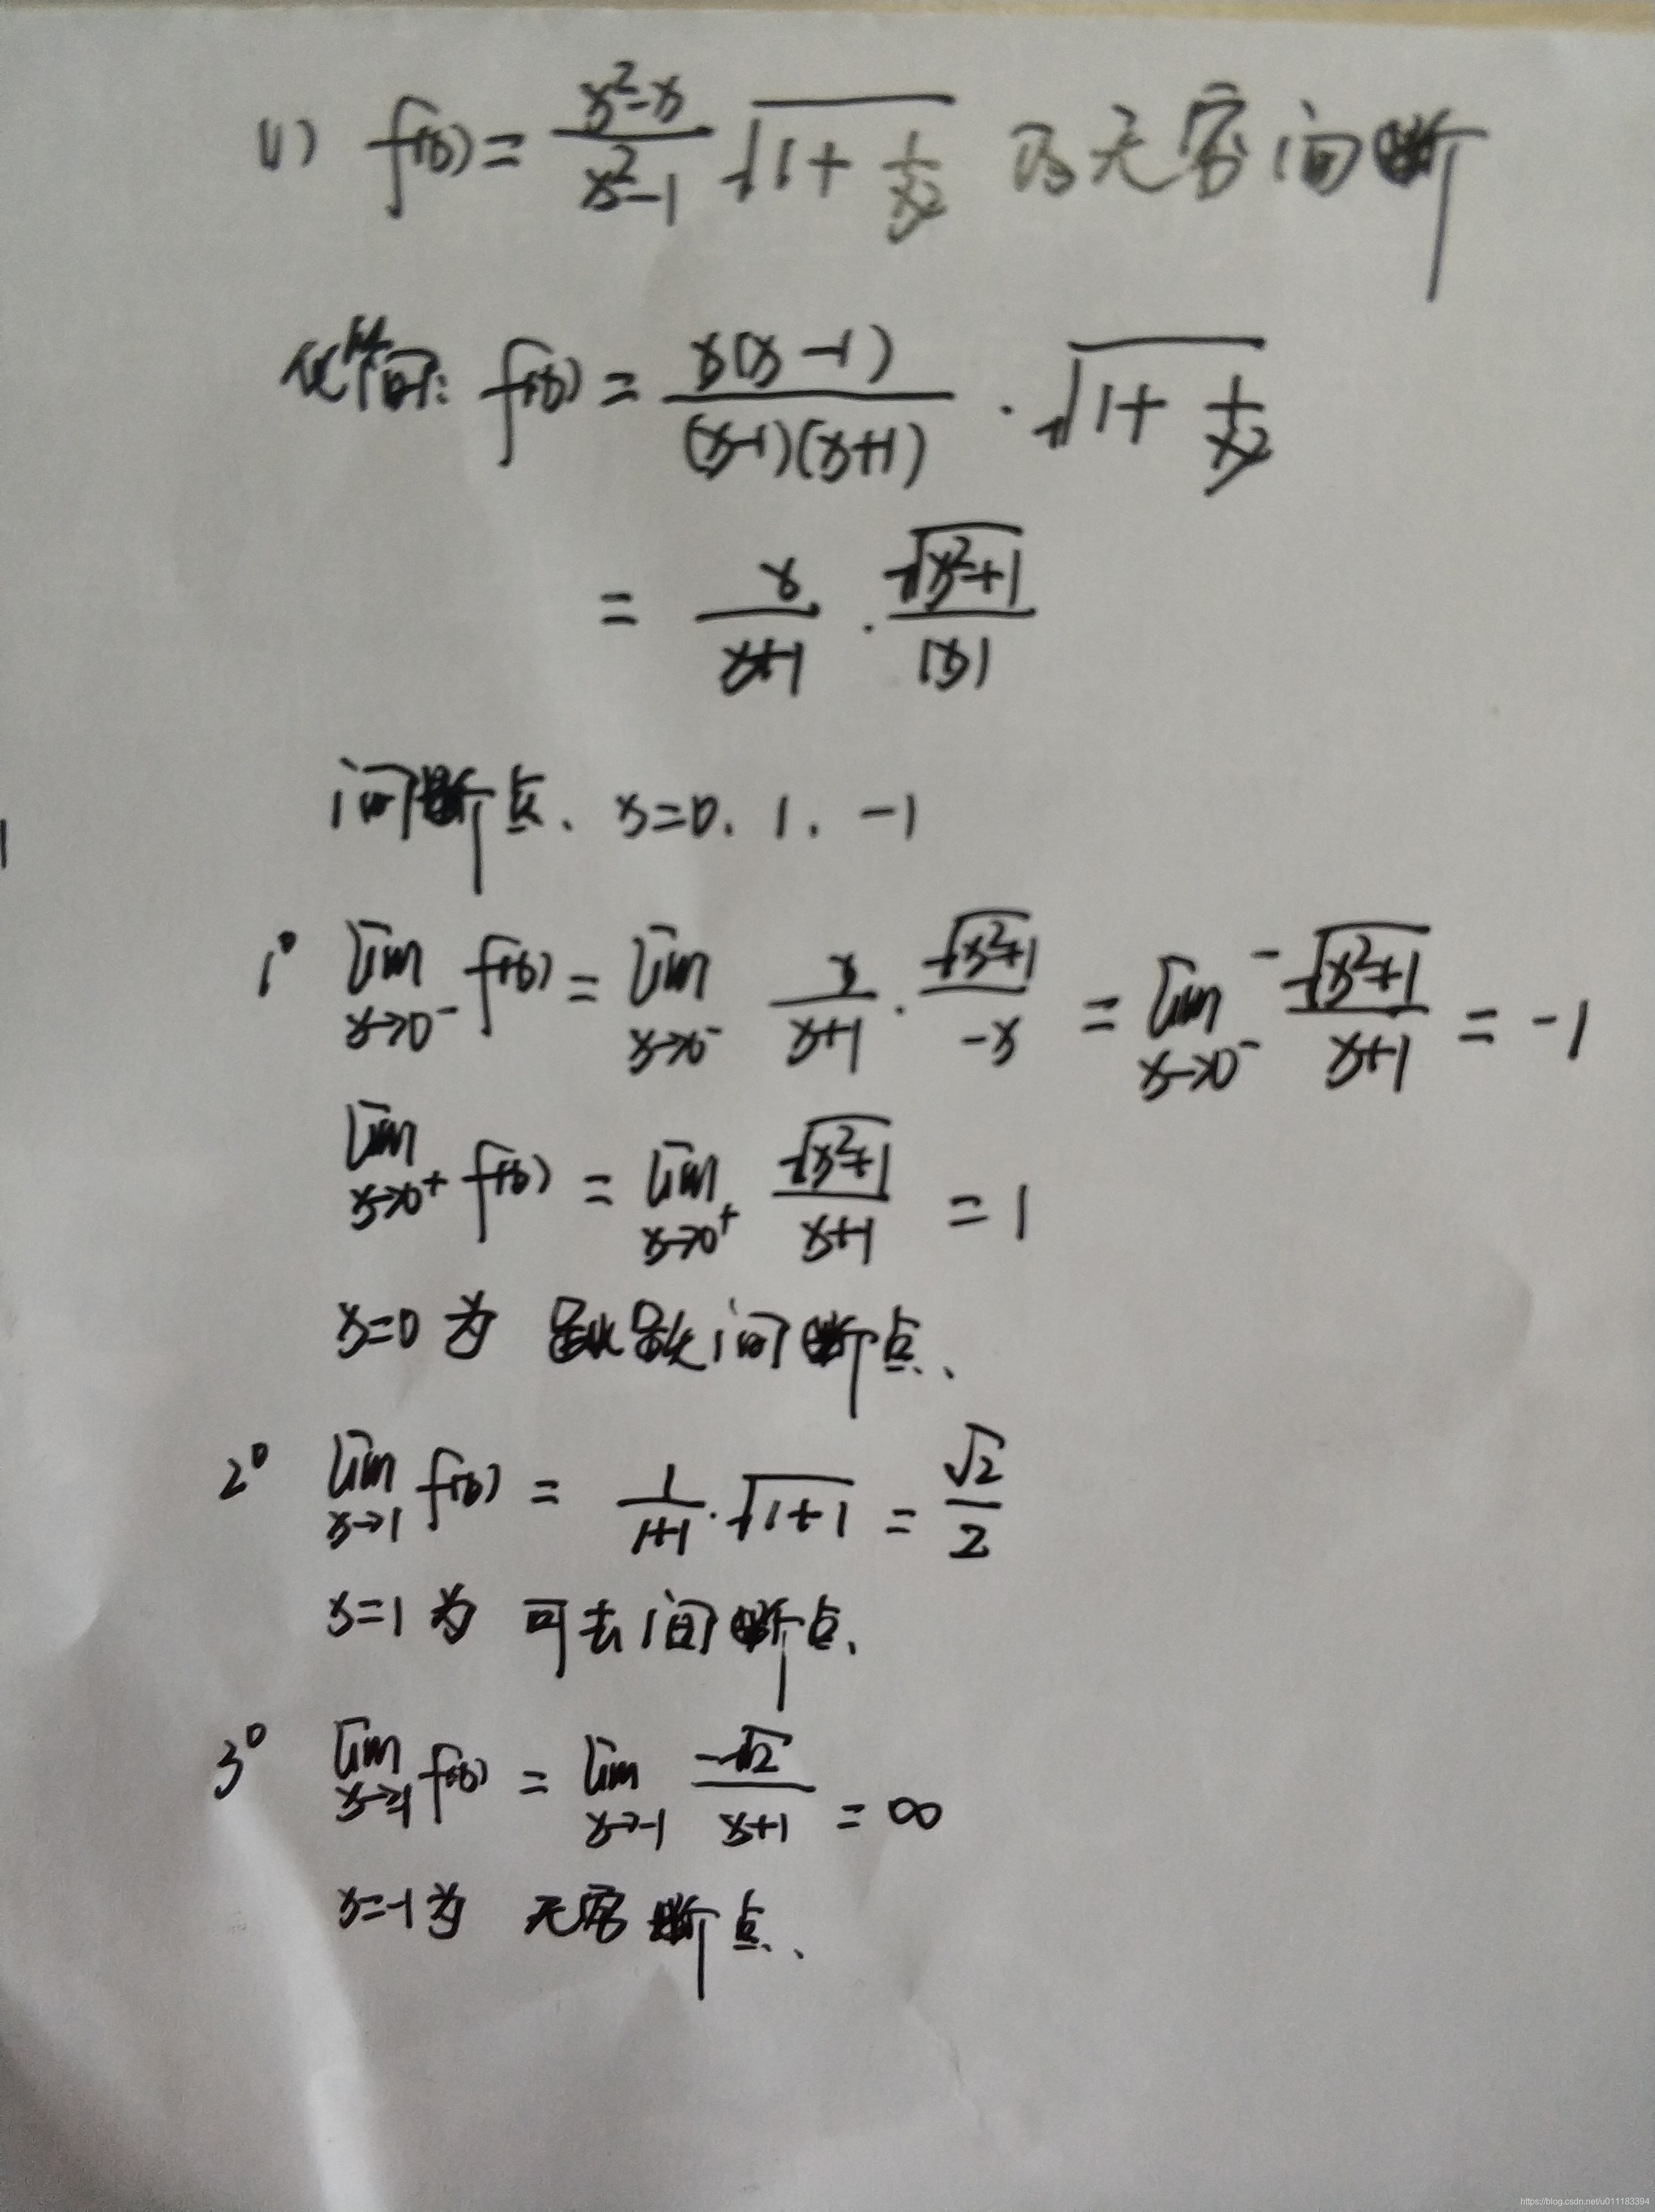 (1) f(x)=\frac{x²-x}{x²-1}√(1+\frac{1}{x²}) 的无穷间断
化简: f(x)=\frac{x(x-1)}{(x-1)(x+1)}·√(1+\frac{1}{x²})
=\frac{x}{x+1}·\frac{√(x²+1)}{|x|}
间断点、x=0. 1. -1
1° lim_{x→0⁻} f(x)=lim_{x→0⁻} \frac{x}{x+1}·\frac{√(x²+1)}{-x}=lim_{x→0⁻} -\frac{√(x²+1)}{x+1}=-1
lim_{x→0⁺} f(x)=lim_{x→0⁺} \frac{√(x²+1)}{x+1}=1
x=0 为 跳跃间断点、
2° lim_{x→1} f(x)=\frac{1}{1+1}·√(1+1)=\frac{√2}{2}
x=1 为 可去间断点、
3° lim_{x→-1} f(x)=lim_{x→-1} \frac{-√2}{x+1}=∞
x=-1为 无穷断点、
https://blog.csdn.net/u011183394